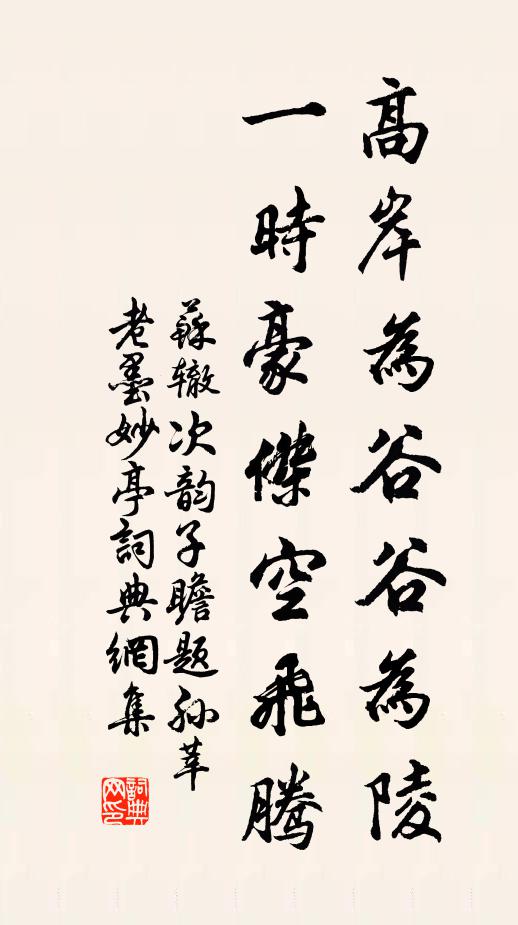 高岸為谷谷為陵
一時豪傑空飛騰
蘇辙次韵子瞻题孙莘
老墨妙亭詞典網集
詞典
网印